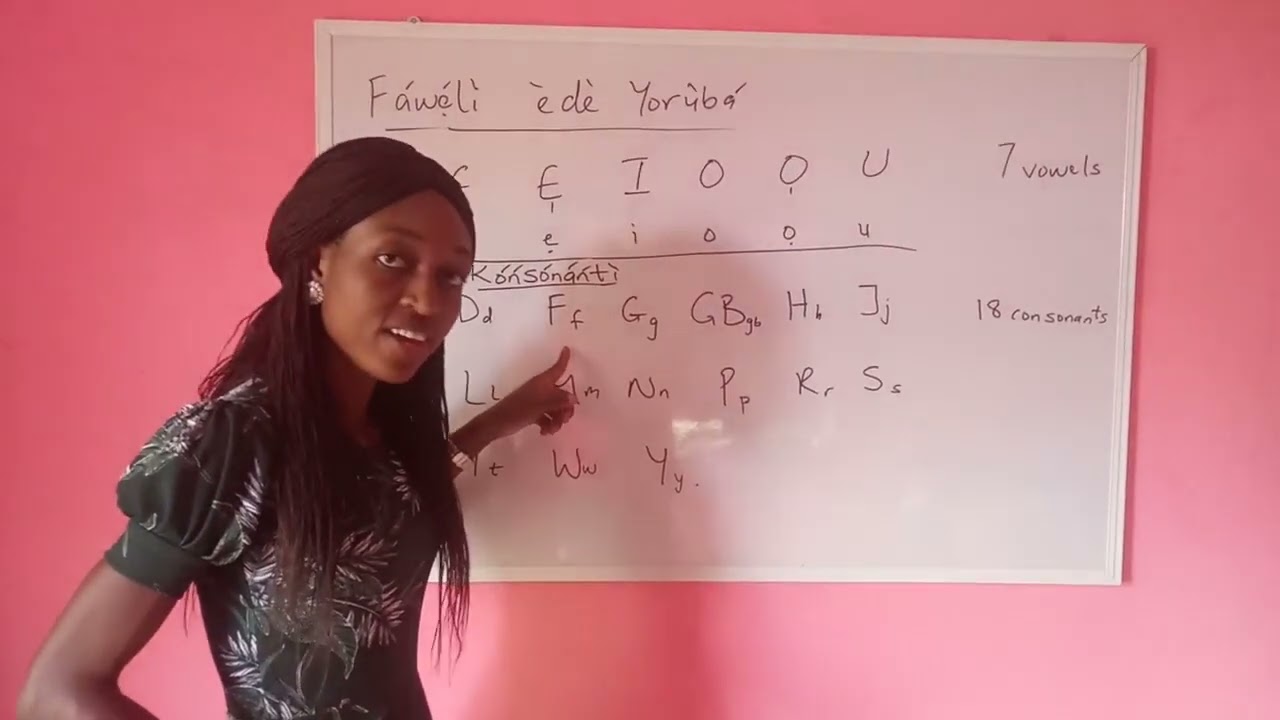 Fáwẹ́lì èdè Yorùbá
Ẹ I O Ọ U 7 vowels
ẹ i o ọ u
Kóńsónáńtì
Dd Ff Gg GBgb Hh Jj 18 consonants
Ll Mm Nn Pp Rr Ss
Tt Ww Yy.